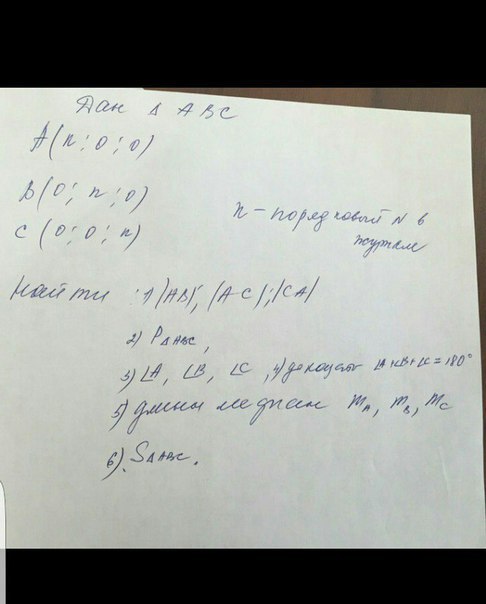 Дан Δ ABC
A(n; 0; 0)
B(0; n; 0)
C(0; 0; n)
n – порядковый N в
журнале
Найти: 1) |AB|; |AC|; |CA|
2) P ΔABC,
3) ∠A, ∠B, ∠C, 4) доказать ∠A+∠B+∠C=180°
5) длины медиан mA, mB, mC
6) S ΔABC.